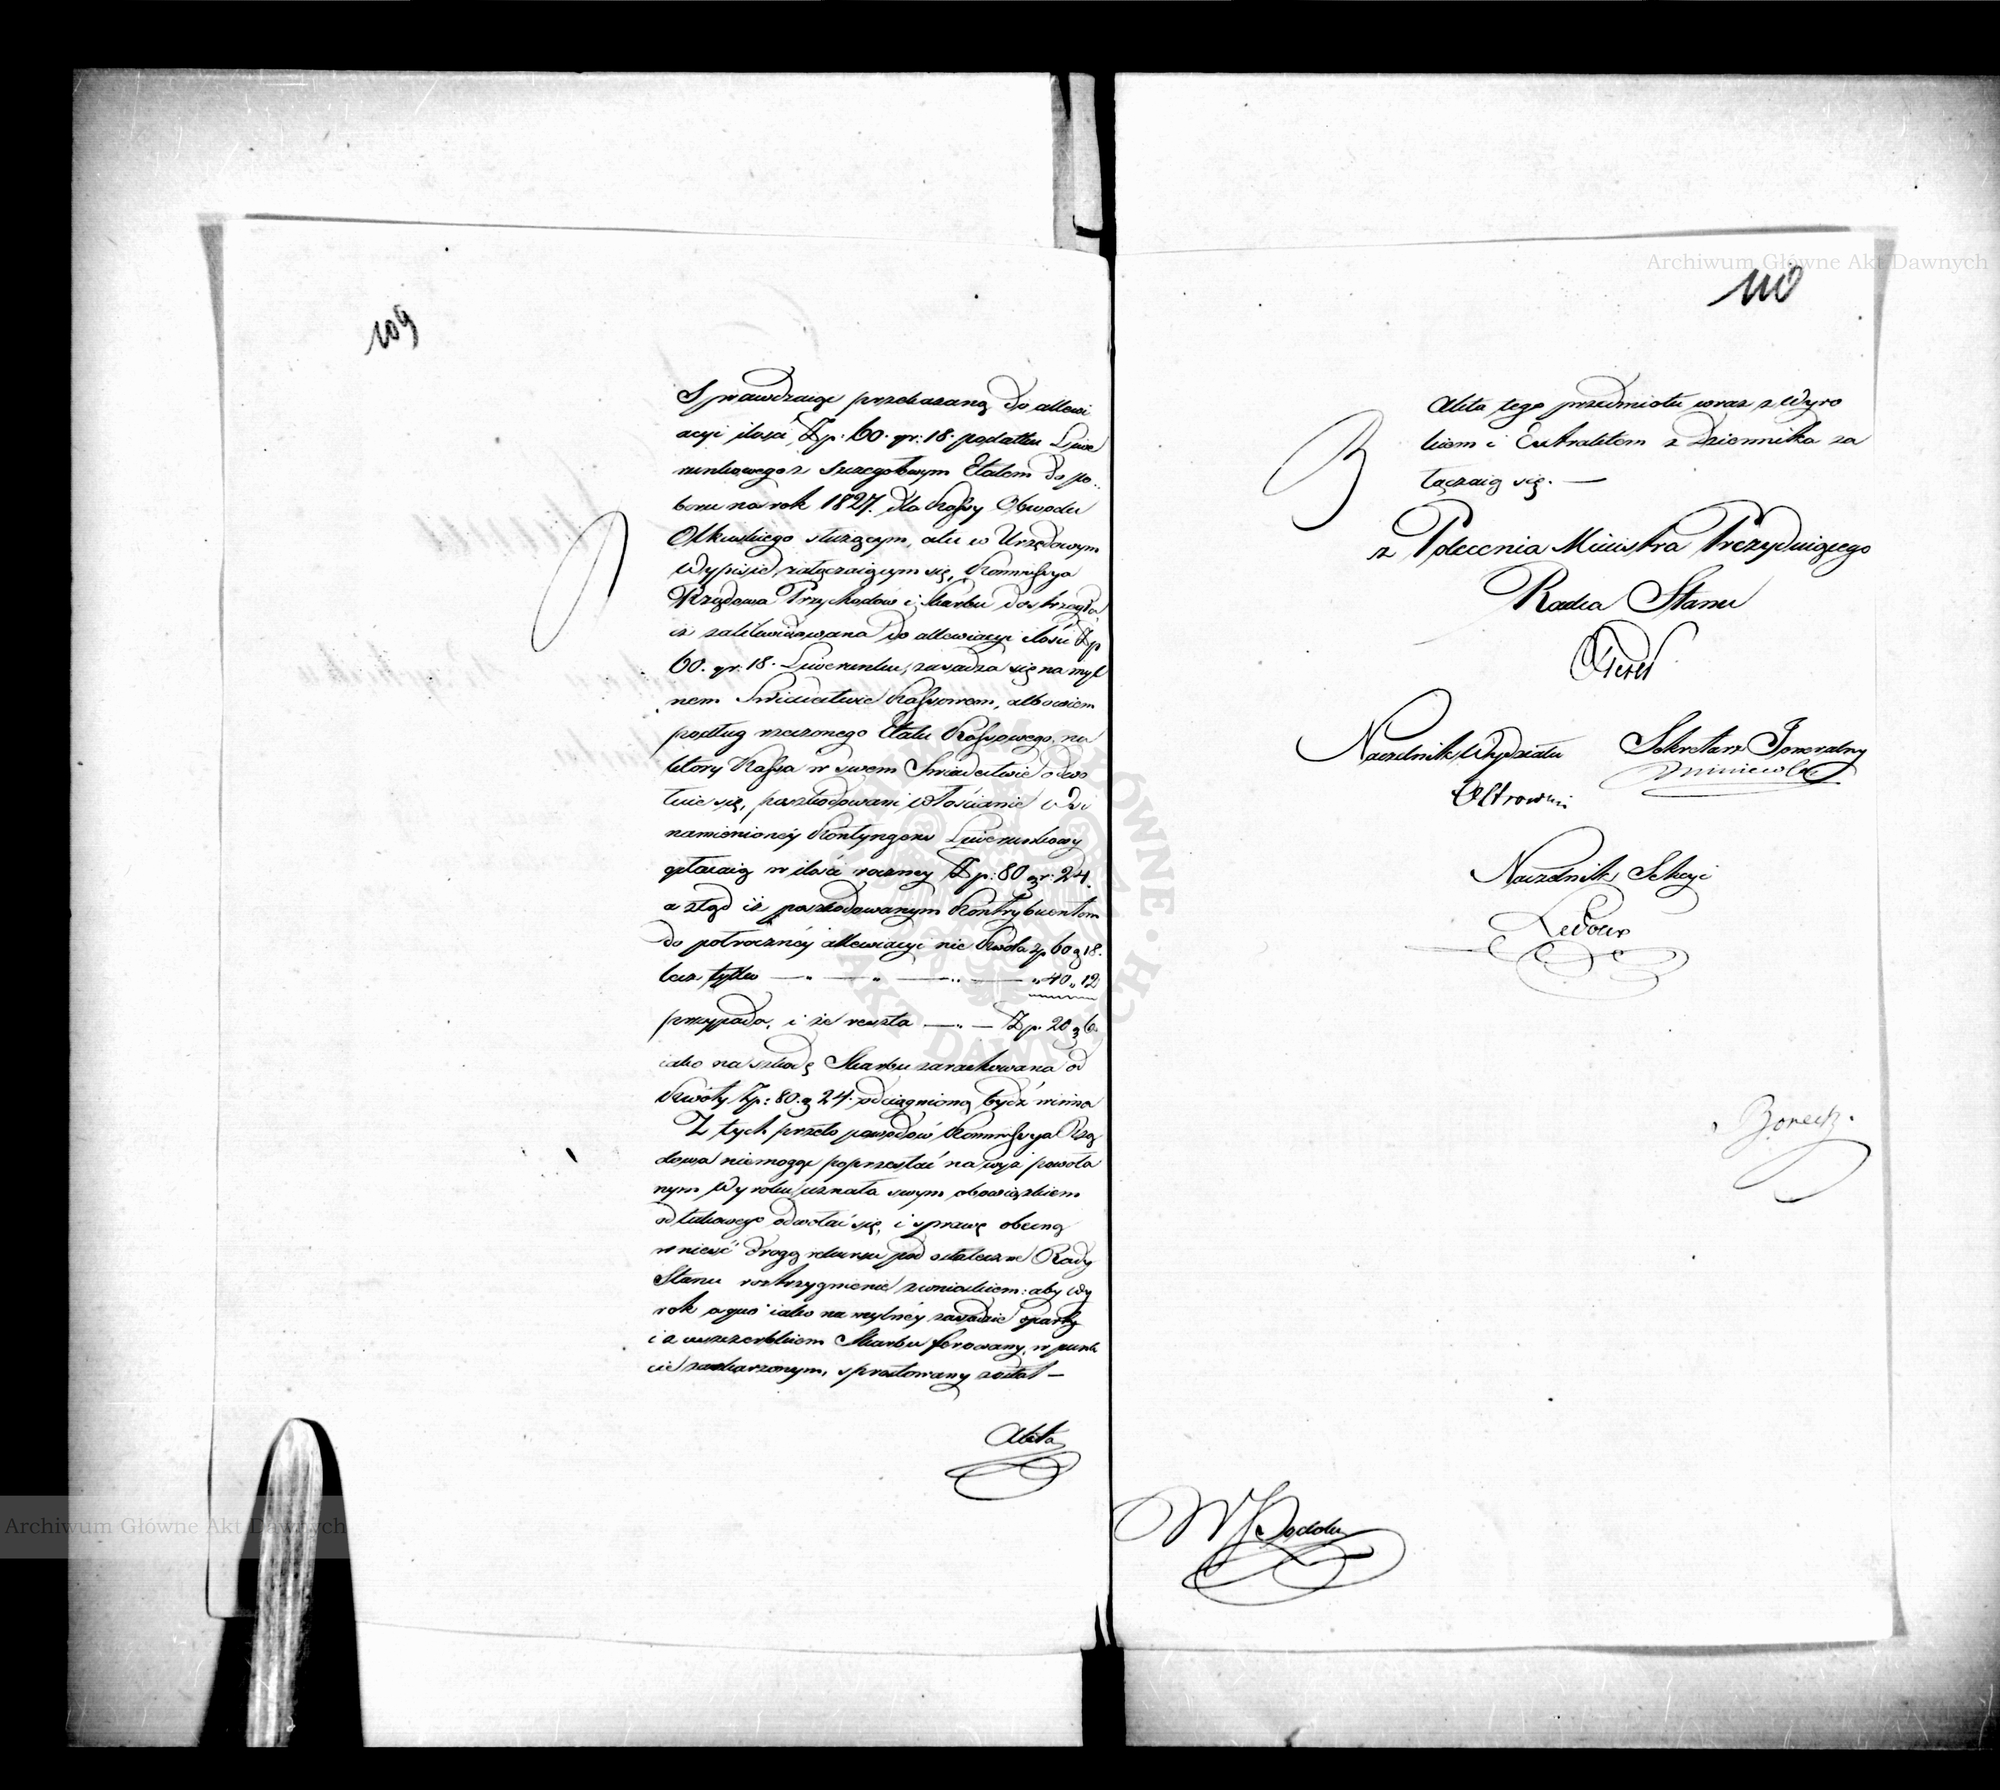 109
Sprawdzaiąc przekazaną do allewi
acyi ilość Złp: 60. gr: 18. podatku Liwe
runkowego z szczegółowym Etatem do po-
boru na rok 1827. dla Kassy Obwodu
Olkuskiego służącym, ale w Urzędowym
Wypisie załączaiącym się, Kommissya
Rządowa Przychodów i Skarbu dostrzegła
iż zalikwidowana do allewiacyi ilość Złp
60. gr. 18. Liwerunku, zasadza się na myl
nem Świadectwie Kassowem, albowiem
podług rzeczonego Etatu Kassowego, na
który Kassa w swem Świadectwie odwo
łuie się, poszkodowani włościanie wsi
namienionéy Kontyngens Liwerunkowy
opłacaią w ilości roczney Złp: 80 gr: 24.
a ztąd iż poszkodowanym Kontrybuentom
do półrocznéy allewiacyi nie Kwota zp 60 g 18.
lecz tylko — „ — „ — „ — „ 40 „ 12
przypada, i że reszta — „ — Złp. 20 g 6.
iako na szkodę Skarbu zarachowana od
Kwoty Złp: 80. g 24. odciągnioną bydź winna
Z tych przeto powodów Kommissya Rzą
dowa niemogąc poprzestać na wyż powoła
nym Wyroku, uznała swym obowiązkiem
od takowego odwołać się, i sprawę obecną
wnieść drogą rekursu pod ostateczne Rady
Stanu rozstrzygnienie z wnioskiem: aby Wy
rok a quo iako na mylnéy zasadzie oparty
i z uszczerbkiem Skarbu ferowany, w punk
cie zaskarżonym, sprostowany został —
Akta
110
Akta tego przedmiotu wraz z Wyro
kiem i Extraktem z Dziennika za
łączaią się. —
z Polecenia Ministra Prezyduiącego
Radca Stanu
Naczelnik Wydziału
Sekretarz Jeneralny
Ostrowski
Naczelnik Sekcyi